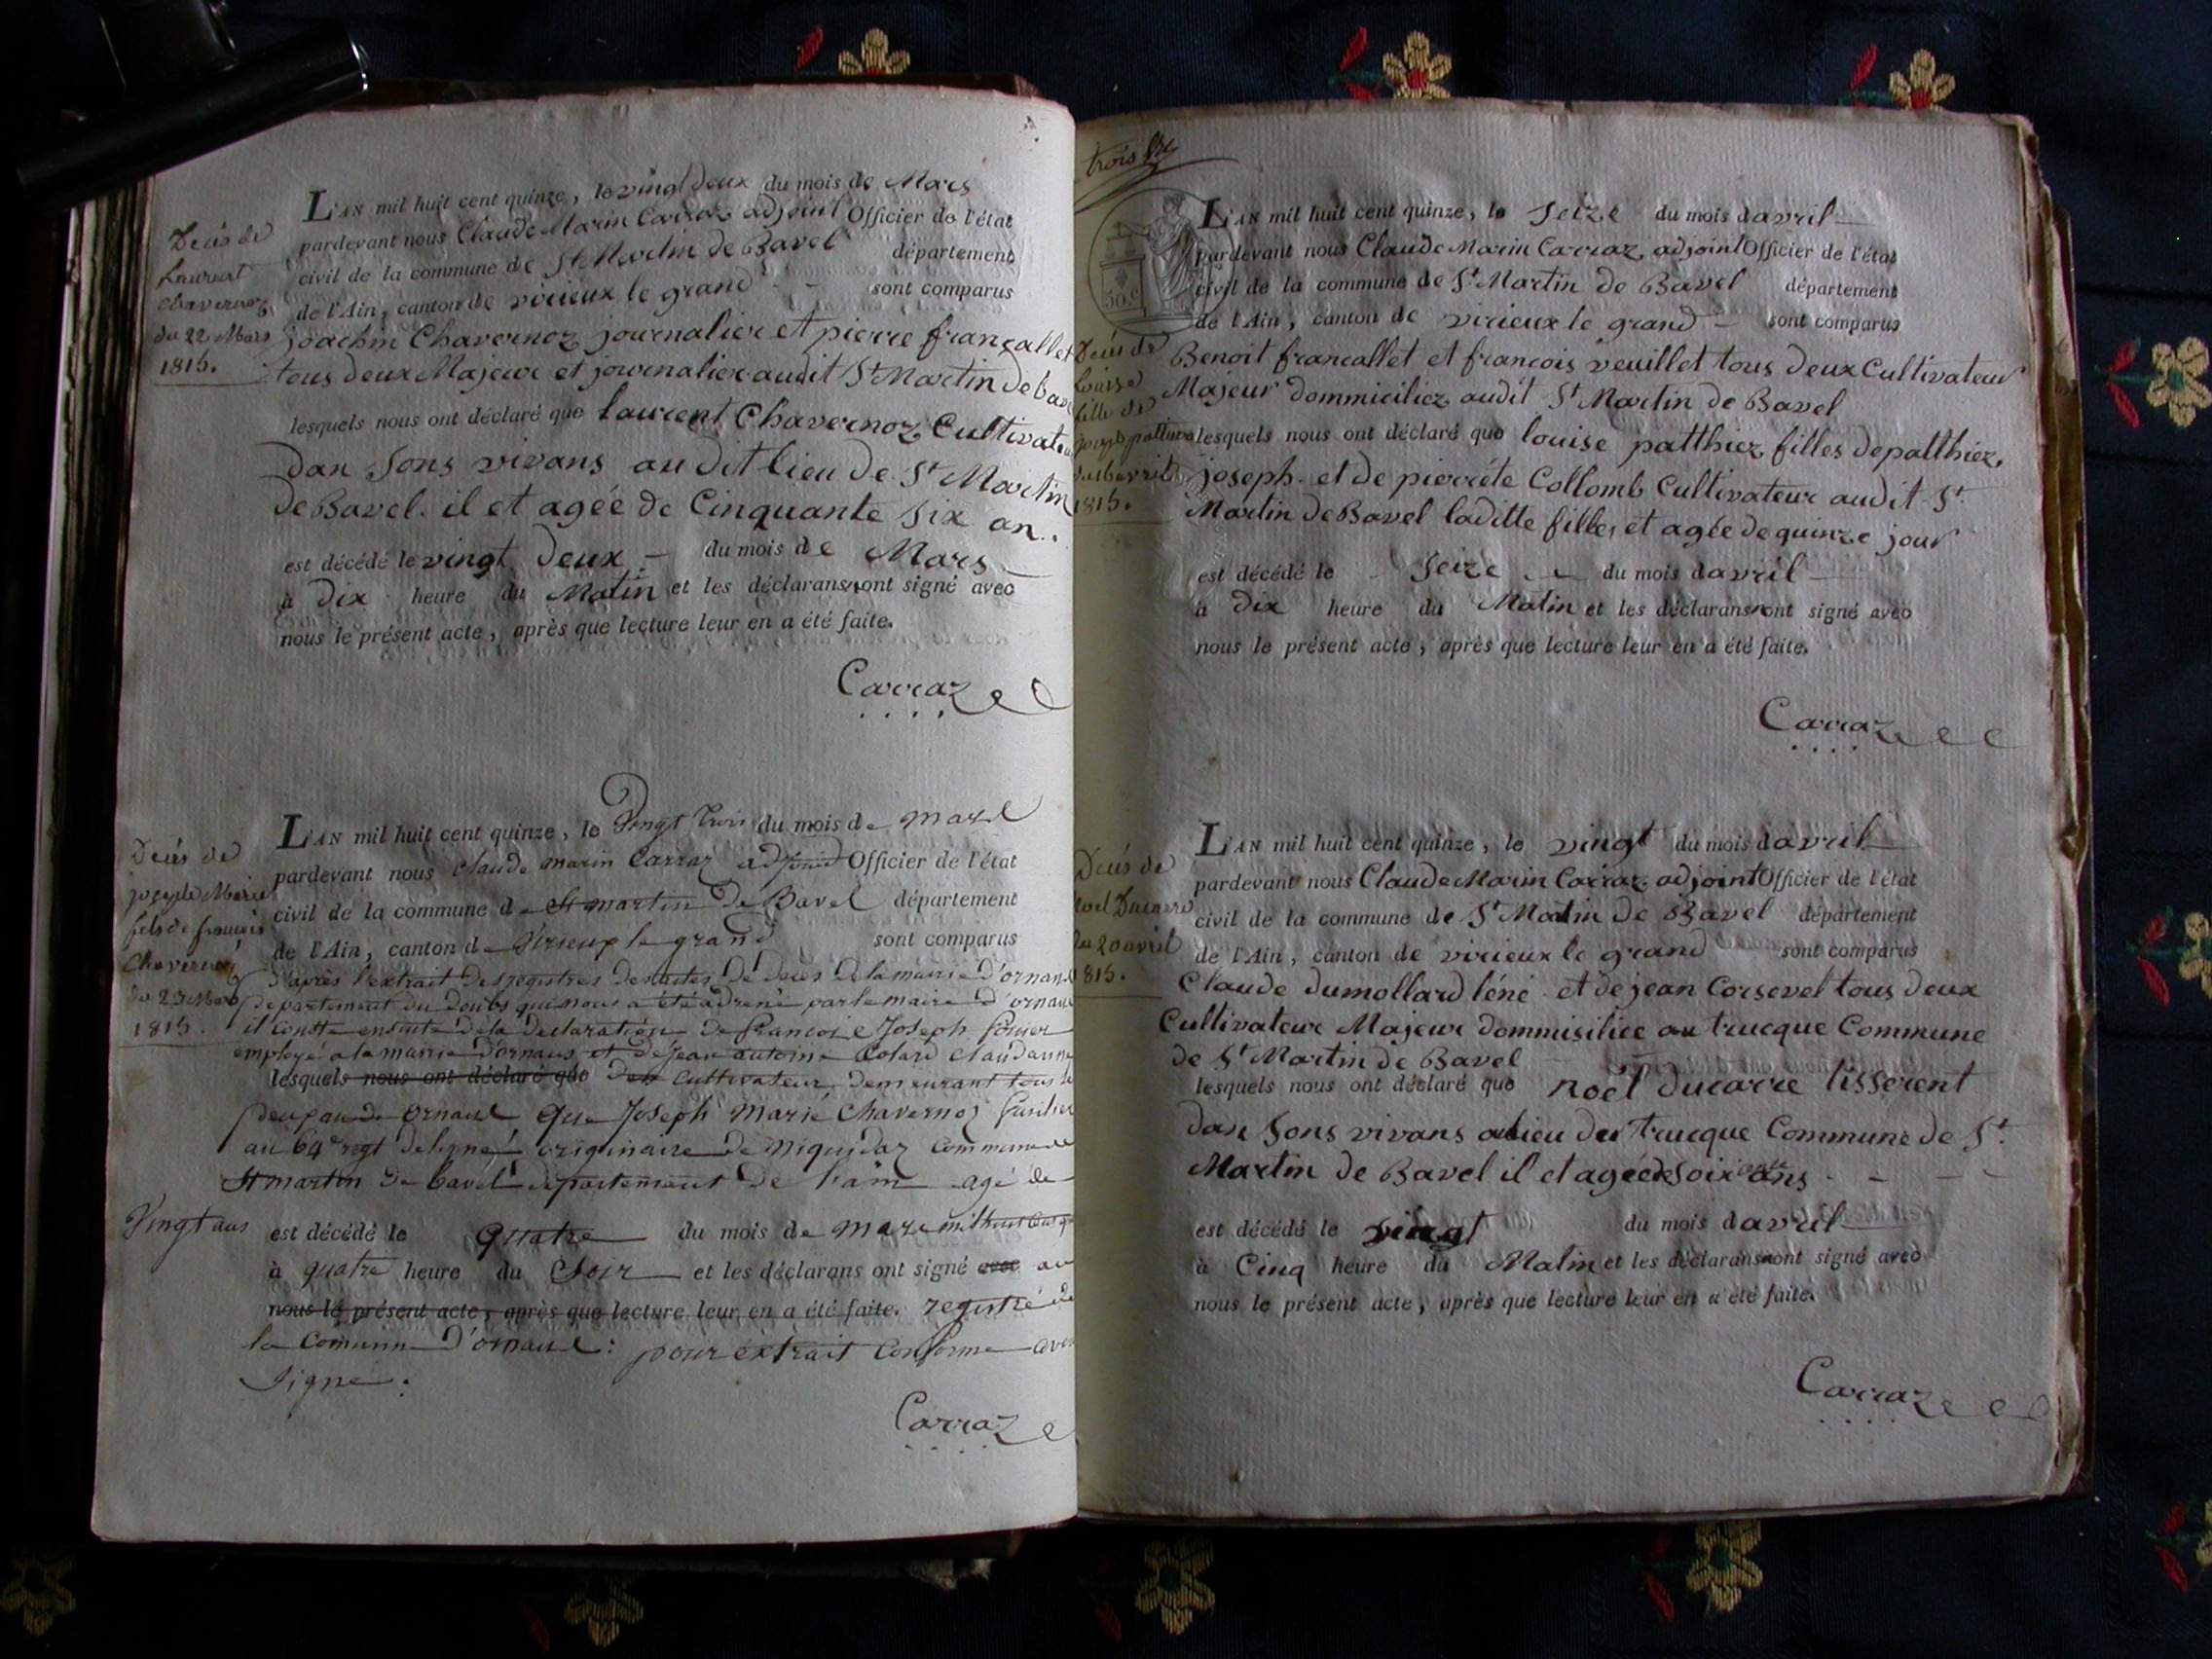 Décès de
Laurent
Chavernoz
du 22 Mars
1815.
L'AN mil huit cent quinze, le vingt deux du mois de Mars
pardevant nous Claude Marin Carraz adjoint Officier de l'état
civil de la commune de St Martin de Bavel département
de l'Ain, canton de virieux le grand sont comparus
joachin Chavernoz journalier et pierre françallet
tous deux Majeur et journalier audit St Martin de bavel
lesquels nous ont déclaré que laurent Chavernoz Cultivateur
dan Sons vivans au dit lieu de St Martin
de Bavel. il et agée de Cinquante Six an..
est décédé le vingt deux - du mois de Mars
à dix heure du Matin et les déclarans nont signé avec
nous le présent acte, après que lecture leur en a été faite.
Carraz
Décès de
joseph Marie
fils de françois
Chavernoz
du 23 Mars
1815.
L'AN mil huit cent quinze, le Vingt trois du mois de mars
pardevant nous Claude marin Carraz adjoint Officier de l'état
civil de la commune de St martin de Bavel département
de l'Ain, canton de Virieux le grand sont comparus
d'après l'extrait des registres des actes de deces de la mairie d'ornans
departement du Doubs qui nous a été adressé par le maire d'ornans
il conste ensuite de la declaration de francois Joseph
employé a la mairie d'ornans et de jean antoine Colard
lesquels nous ont déclaré que Cultivateur demeurant tous
ornans que Joseph marie Chavernoz fusilier
au 64e regt de ligne, originaire de Commune de
St martin de bavel departement de l'ain agé de
Vingt ans
est décédé le quatre du mois de mars mil huit cent
à quatre heure du Soir et les déclarans ont signé avec au
nous le présent acte, après que lecture leur en a été faite. registre de
la Comune d'ornans: pour extrait Conforme avons
Signé.
Carraz
trois
30 C
Décès de
Louise
fille de
joseph patthiez
du 16 avril
1815.
L'AN mil huit cent quinze, le Seize du mois d avril
pardevant nous Claude Marin Carraz adjoint Officier de l'état
civil de la commune de St Martin de Bavel département
de l'Ain, canton de virieux le grand - sont comparus
Benoit francallet et francois veuillet tous deux Cultivateur
Majeur dommiciliez audit St Martin de Bavel
lesquels nous ont déclaré que louise patthiez filles de patthiez
joseph et de pierrete Collomb Cultivateur audit St
Martin de Bavel laditte filles et agée de quinze jour
est décédé le Seize du mois d avril
à dix heure du Matin et les déclarans nont signé avec
nous le présent acte, après que lecture leur en a été faite.
Carraz
Décès de
noel Ducarre
du 20 avril
1815.
L'AN mil huit cent quinze, le vingt du mois d avril
pardevant nous Claude Marin Carraz adjoint Officier de l'état
civil de la commune de St Matin de Bavel département
de l'Ain, canton de virieux le grand sont comparus
Claude dumollard léné et de jean Corsevel tous deux
Cultivateur Majeur dommisiliee au trucque Commune
de St Martin de Bavel
lesquels nous ont déclaré que noël ducarre tisserent
dan Sons vivans au lieu du trucque Commune de St
Martin de Bavel il et agée de Soixante ans
est décédé le vingt du mois d avril
à Cinq heure du Matin et les déclarans nont signé avec
nous le présent acte, après que lecture leur en a été faite.
Carraz